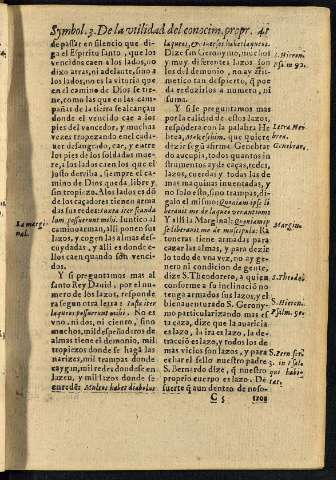 Symbol. 3. De la vtilidad del conocim. propr. 41
de passar en silencio que di-
ga el Espiritu santo, que los
vencidos caen a los lados, no
dizo atras, ni adelante, sino a
los lados, no es la vitoria que
en el camino de Dios se tie-
ne, como las que en las cam-
pañas de la tierra se alcançan
donde el vencido cae a los
pies del vencedor, y muchas
vezes tropeçando en el cada-
uer desangrado, cae, y entre
los pies de los soldados mue-
re, a los lados caen los que el
justo derriba, siempre el ca-
mino de Dios queda libre, y
sin tropieço. A los lados es dõ
de los caçadores tienen arma-
das sus redes
caminoarman, alli ponen sus
lazos, y cogen las almas des-
cuydadas, y alli es donde e-
llos caen quando son venci-
dos.
Y si preguntamos mas al
santo Rey Dauid, por el nu-
mero de los lazos, responde
ya segun otra letra: Iuxta iter
laqueos posuerunt mihi. No es
vno, ni dos, ni ciento, sino
muchos, mil despeñaderos de
almas tiene el demonio, mil
tropieços donde se haga las
narizes, mil trampas donde
caygan, mil redes donde se en
lazen, y mil lazos donde se
enrede: Multos habet diabolus
La margi-
nal.
laqueos,
Dize san Geronymo, mochos
y muy diferentes lazos son
los del demonio, no ay arit-
metico tan despierto, q̃ pue
da reduzirlos a numero, ni
suma.
Y si le preguntamos mas
por la calidad de estos lazos,
respõdera con la palabra He
brea, que quiere
dezir segũ afirma Genebrar
do aucupis, todos quantos in
strumentos ay de caças, redes,
lazos, cuerdas y todas las de
mas maquinas inuentadas, y
no solo esto, sino trampas, di-
galo el mismo: Quoniam ipse li
berauit me de laqueo venantium.
Y alli la Marginal: Quoniam ip
se liberauit me de muscipula. Ra
toneras tiene armadas para
caçar las almas, y para dezir
lo todo de vna vez, no ay ge-
nero ni condicion de gente,
dize S. Theodoreto, a quien
conforme a su inclinacion no
tenga armados sus lazos, y el
bienauenturado S. Gerony-
mo particularizando mas es
ta caça, dize que la auaricia
es lazo, la ira es lazo, la de-
traccion es lazo, y todos los de
mas vicios son lazos, y para
echar el sello nuestro padre
S. Bernardo dize, q̃ nuestro
proprio cuerpo es lazo. De
suerte q̃ aun dentro de noso-
S. Hieron.
Psa in 90.
Letra Hebrea.
Genebrar.
Margin.
S. Theodo.
S. Hieron.
S.
C 5
tros